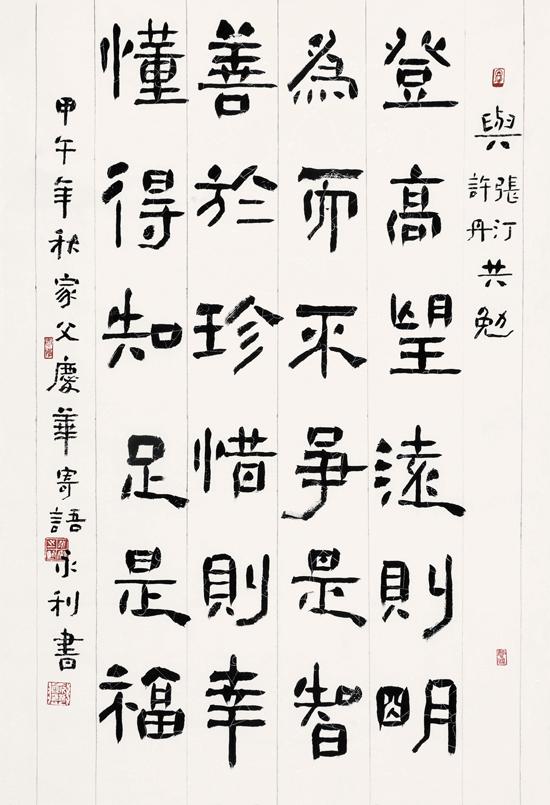 與張汀許丹共勉
登高望遠則明
為而不爭是智
善於珍惜則幸
懂得知足是福
甲午年秋家父慶華寄語永利書